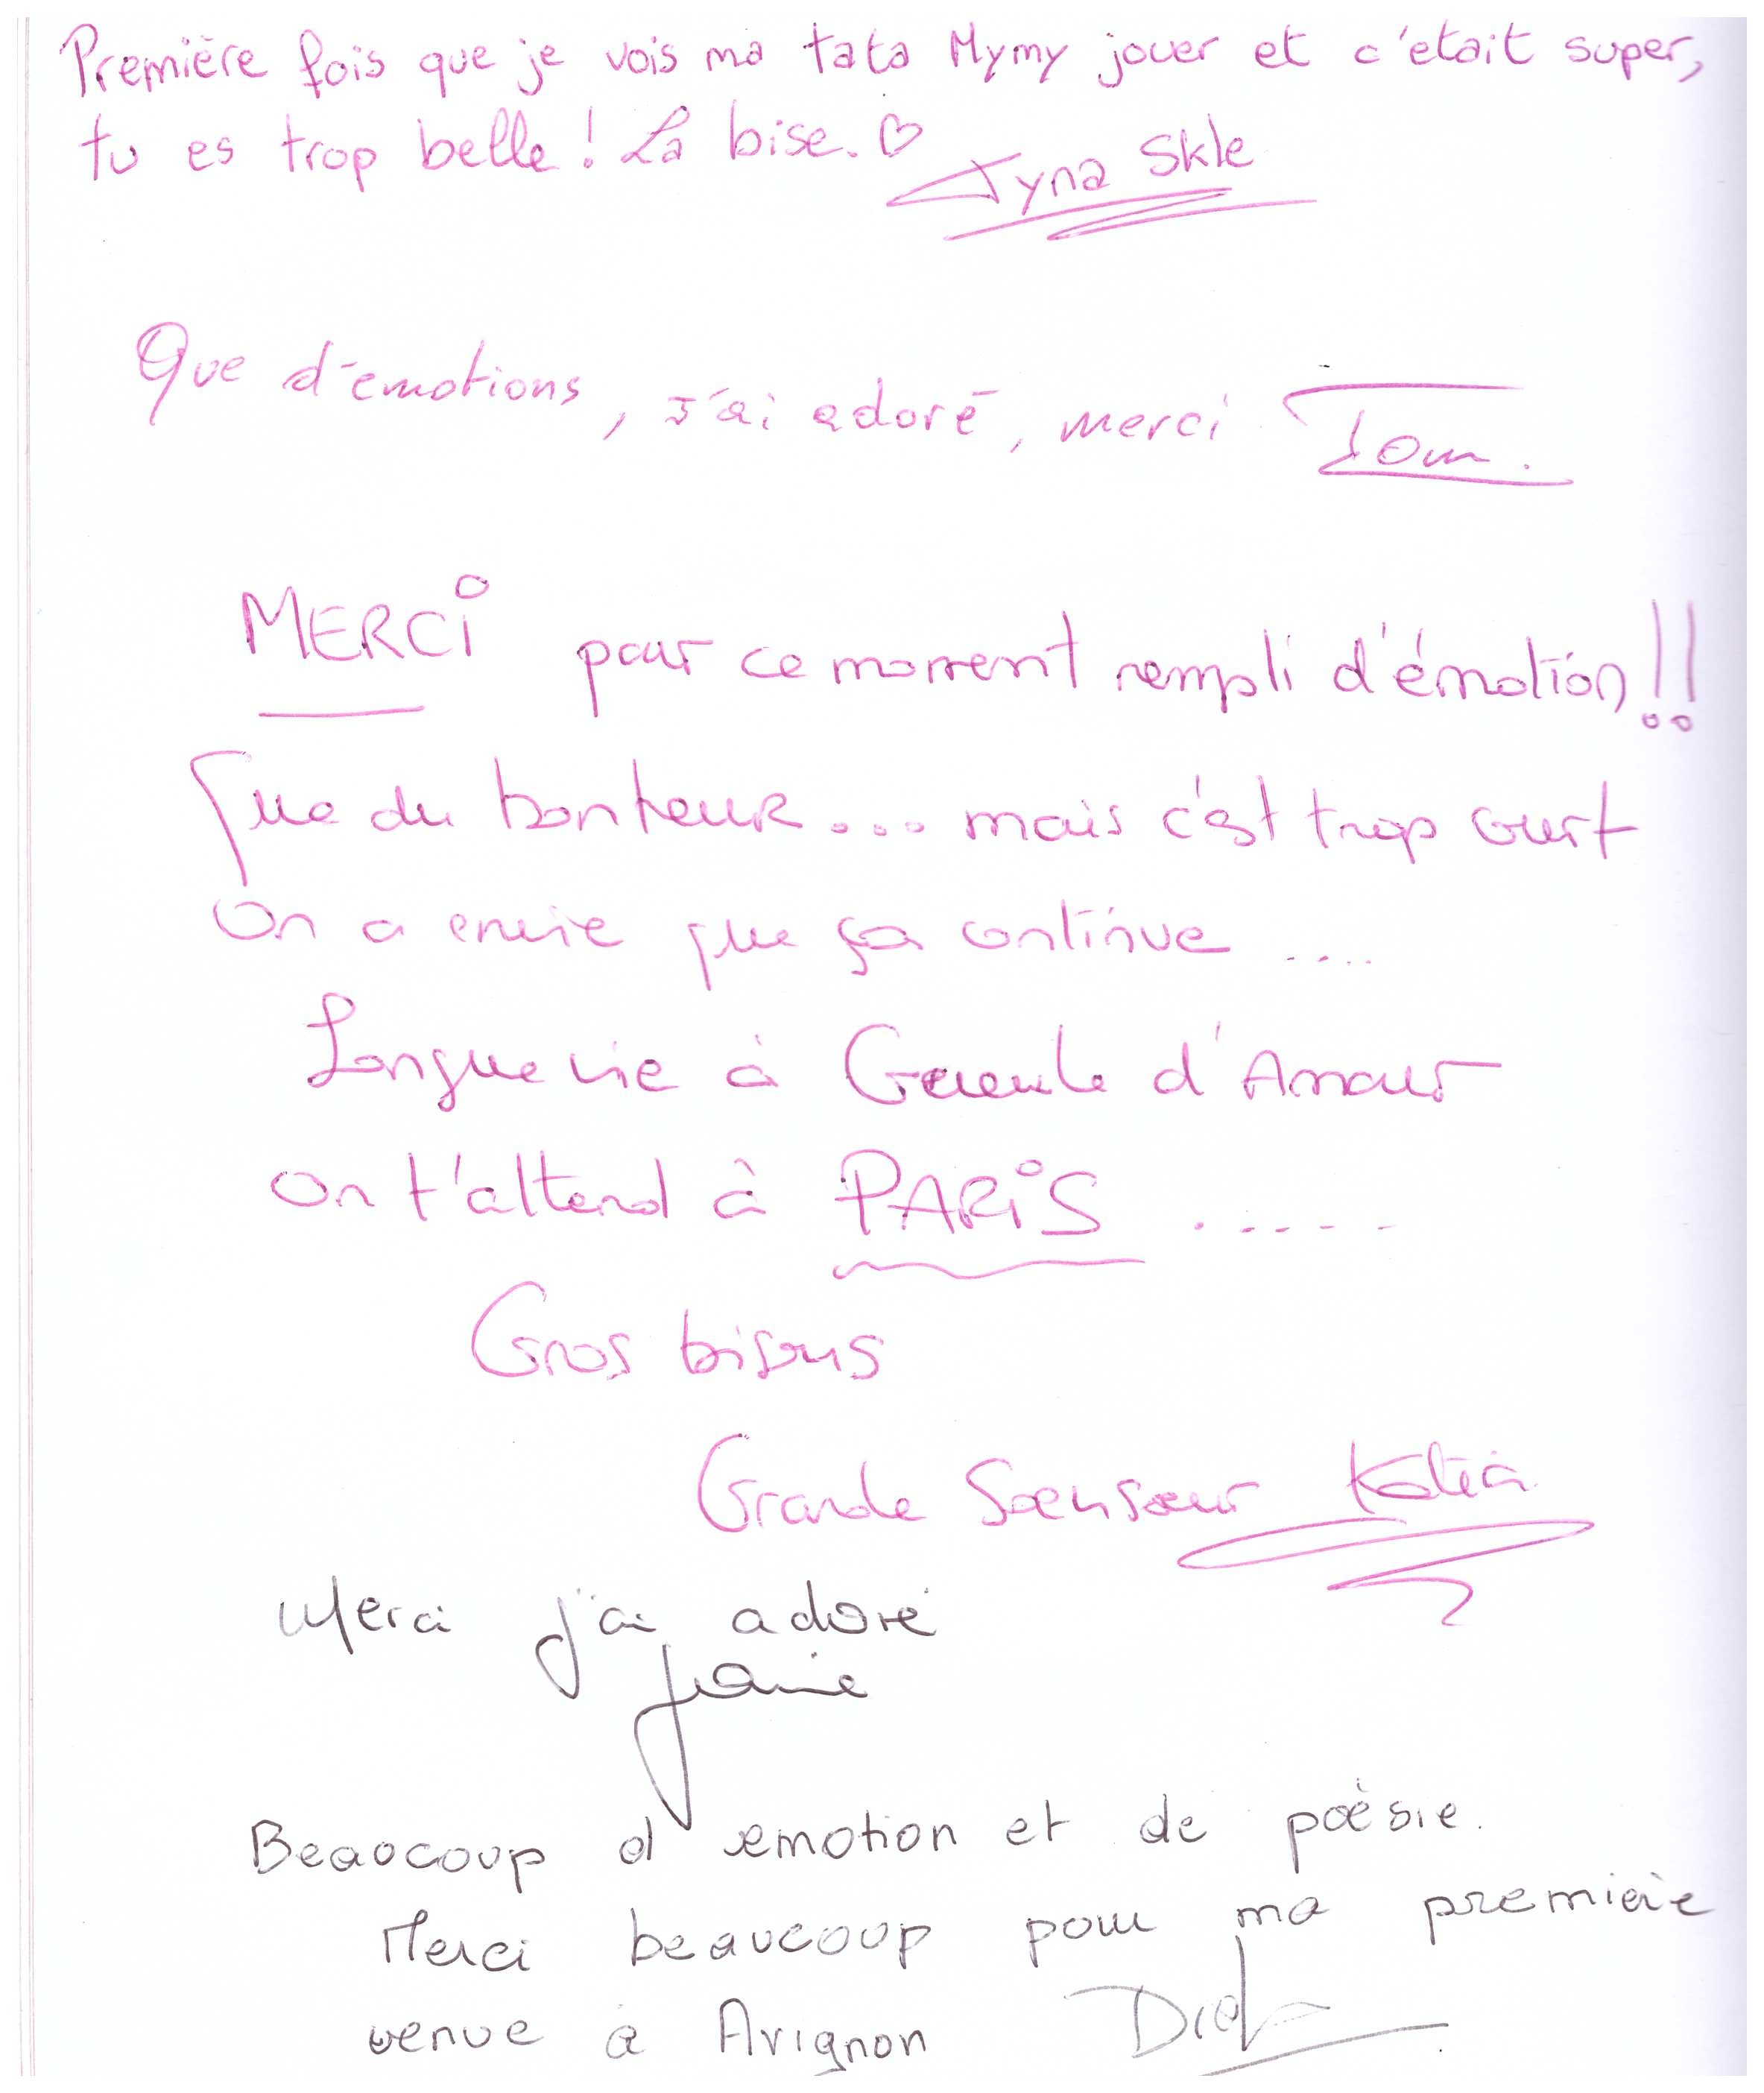 Première fois que je vois ma tata Mymy jouer et c'etait super,
tu es trop belle ! La bise. ♡
Tyna Skle
Que d'emotions, j'ai adoré, merci Tom.
MERCI pour ce moment rempli d'émotion !!
Que du bonheur... mais c'est trop court
On a envie que ça continue ....
Longue vie à Gueule d'Amour
On t'attend à PARIS .....
Gros bisous
Grande Soeusoeur Katia
Merci j'ai adoré
Beaucoup d'emotion et de poésie.
Merci beaucoup pour ma première
venue à Avignon